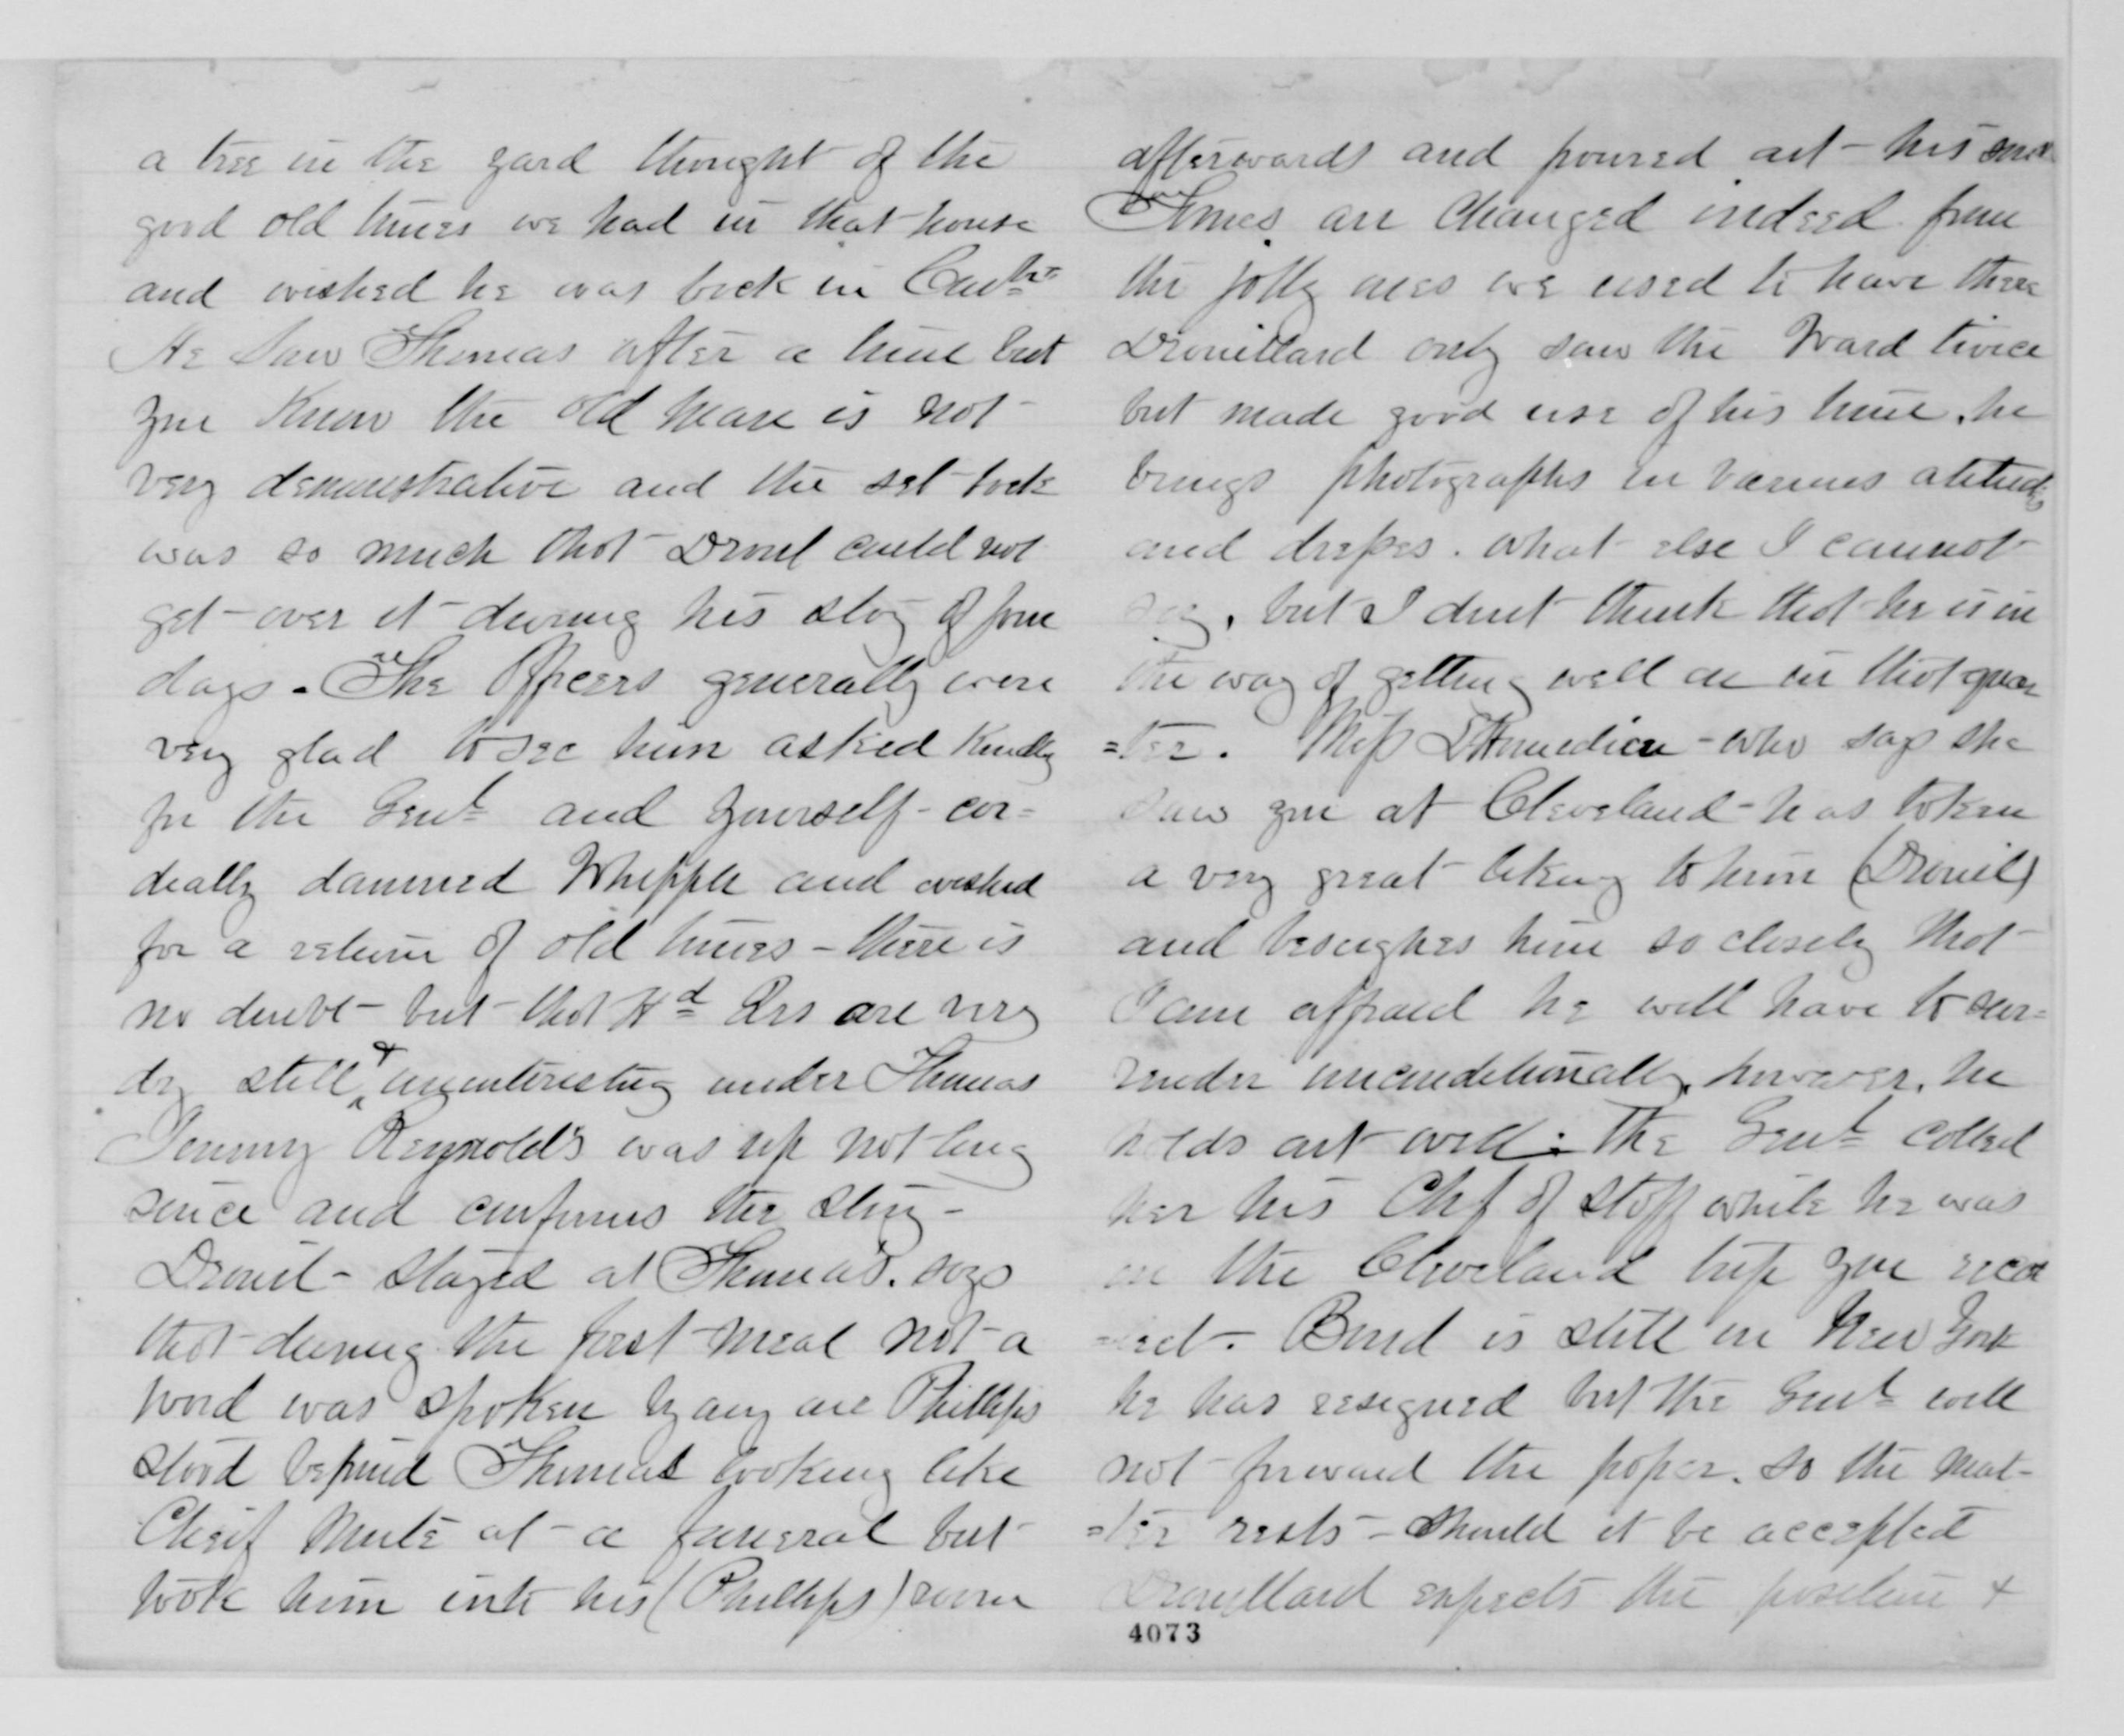 a tree in the yard thought of the
good old times we had in that house
and wished he was back in
He saw Thomas after a time but
you know the old man is not
very demonstrative and the set back
was so much that Drouil could not
get over it during his stay of four
days. The Officers generally were
very glad to see him asked kindly
for the Genl and yourself - cor=
dially damned Whipple and wished
for a return of old times - there is
no doubt - but that Hd Qrs are very
dry still & uninteresting under Thomas
Jimmy Reynolds was up not long
since and confirms the story -
Drouil - stayed at Thomas. says
that during the first meal not a
word was spoken by any one Phillips
stood behind Thomas looking like
Chief Mute at a funeral but
took him into his (Phillips) room
afterwards and poured out his
Times are changed indeed from
the jolly ones we used to have there
Drouillard only saw the Ward twice
but made good use of his time. he
brings photographs in various atitudes
and dresses. what else I cannot
say, but I dont think that he is in
the way of getting well on in that quar
=ter. Miss - who says she
saw you at Cleveland - has taken
a very great liking to him (Drouil)
and besieges him so closely that
I am affraid he will have to sur=
render unconditionally, however, he
holds out well. The Genl called
her his Chf of Staff while he was
on the Cleveland trip you recol
=lect. Bond is still in New York
he has resigned but the Genl will
not forward the paper. so the mat-
=ter rests - Should it be accepted
Drouillard expects the position &
4073